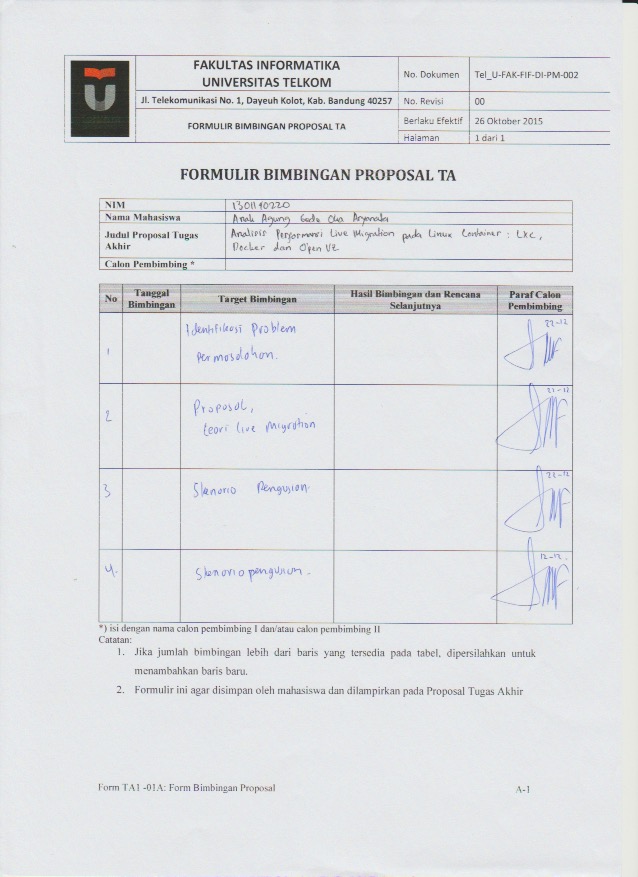 FAKULTAS INFORMATIKA
UNIVERSITAS TELKOM
Jl. Telekomunikasi No. 1, Dayeuh Kolot, Kab. Bandung 40257
FORMULIR BIMBINGAN PROPOSAL TA
No. Dokumen Tel_U-FAK-FIF-DI-PM-002
No. Revisi 00
Berlaku Efektif 26 Oktober 2015
Halaman 1 dari 1
FORMULIR BIMBINGAN PROPOSAL TA
NIM 1301140220
Nama Mahasiswa Anak Agung Gede Oka
Judul Proposal Tugas Analisis Performansi Live Migration pada Linux Container : LXC,
Akhir Docker dan OpenVZ
Calon Pembimbing *
No Tanggal Bimbingan Target Bimbingan Hasil Bimbingan dan Rencana Selanjutnya Paraf Calon Pembimbing
1 Identifikasi Problem 22-12
Permasalahan.
2 Proposal, 22-12
teori live Migration
3 Skenario Pengujian. 22-12
4. Skenario pengujian. 12-12.
*) isi dengan nama calon pembimbing I dan/atau calon pembimbing II
Catatan:
1. Jika jumlah bimbingan lebih dari baris yang tersedia pada tabel, dipersilahkan untuk
menambahkan baris baru.
2. Formulir ini agar disimpan oleh mahasiswa dan dilampirkan pada Proposal Tugas Akhir
Form TA1 -01A: Form Bimbingan Proposal A-1